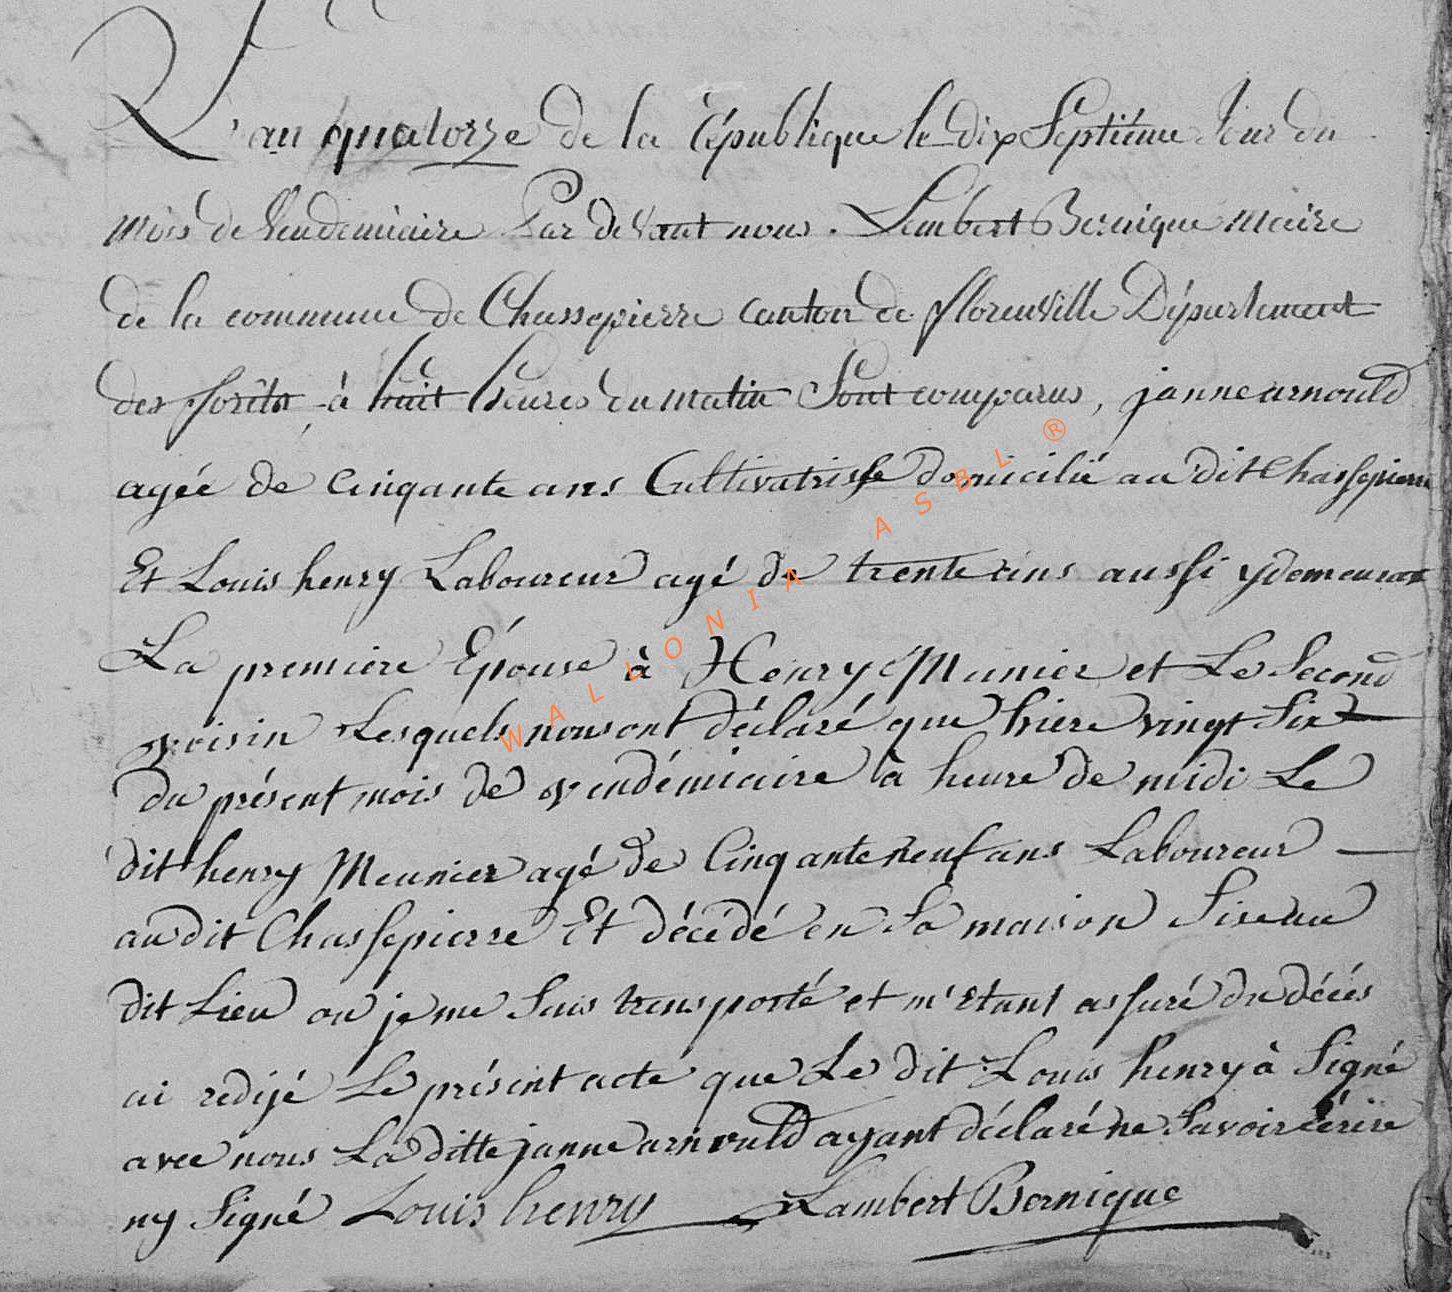 L'an quatorze de la république le dix Septiéme Jour du
mois de Vendemiaire Par devant nous. Lambert Bernique maire
de la commune de Chassepierre canton de florenville Département
des forêts, à huit heures du matin Sont comparus, janne arnould
agée de Cinqante ans Cultivatrisse domicilié au dit Chassepierre
Et Louis henry Laboureur agé de trente ans aussi y demeurant
La premiere Épouse à Henry Munier et Le Second
voisin Lesquels nous ont déclaré que hiere vingt Six
du présent mois de vendémiaire à heure de midi Le
dit henry Meunier agé de Cinqante neuf ans Laboureur
au dit Chassepierre Et décédé en Sa maison Sise au
dit Lieu où je me Suis transporté et m'Etant assuré du décés
ai redijé Le présent acte que Le dit Louis henry à Signé
avec nous La ditte janne arnould ayant déclaré ne Savoir écrire
ny Signé Louis henry Lambert Bernique
WALLONIA ASBL ®